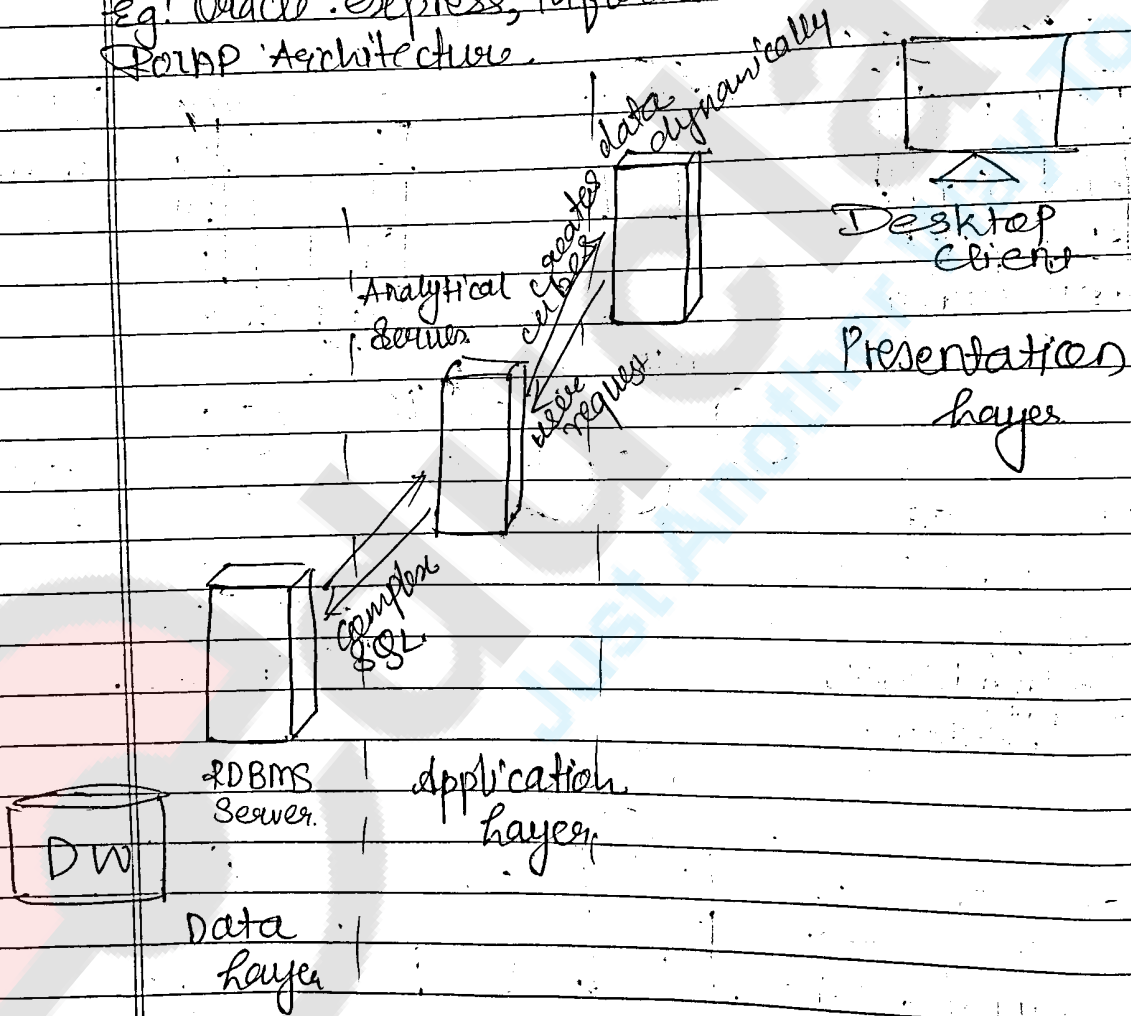 Eg! Oracle Express,
ROLAP Architecture.
data
dynamically.
created
cubes
Desktop
Client
Analytical
Server.
user
request.
Presentation
Layer
complex
SQL.
RDBMS
Server.
Application
Layer,
DW
Data
Layer
Just Another Way To